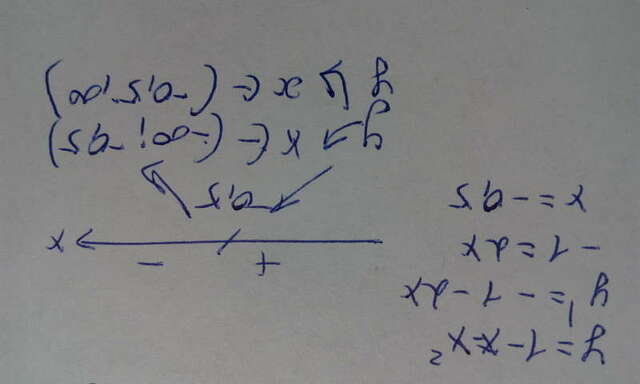 y = 1 - x - x²
y' = - 1 - 2x
- 1 = 2x
x = - 0,5
+ −
x
-0,5
y ↗ x ∈ (-∞; -0,5)
y ↘ x ∈ (-0,5; ∞)